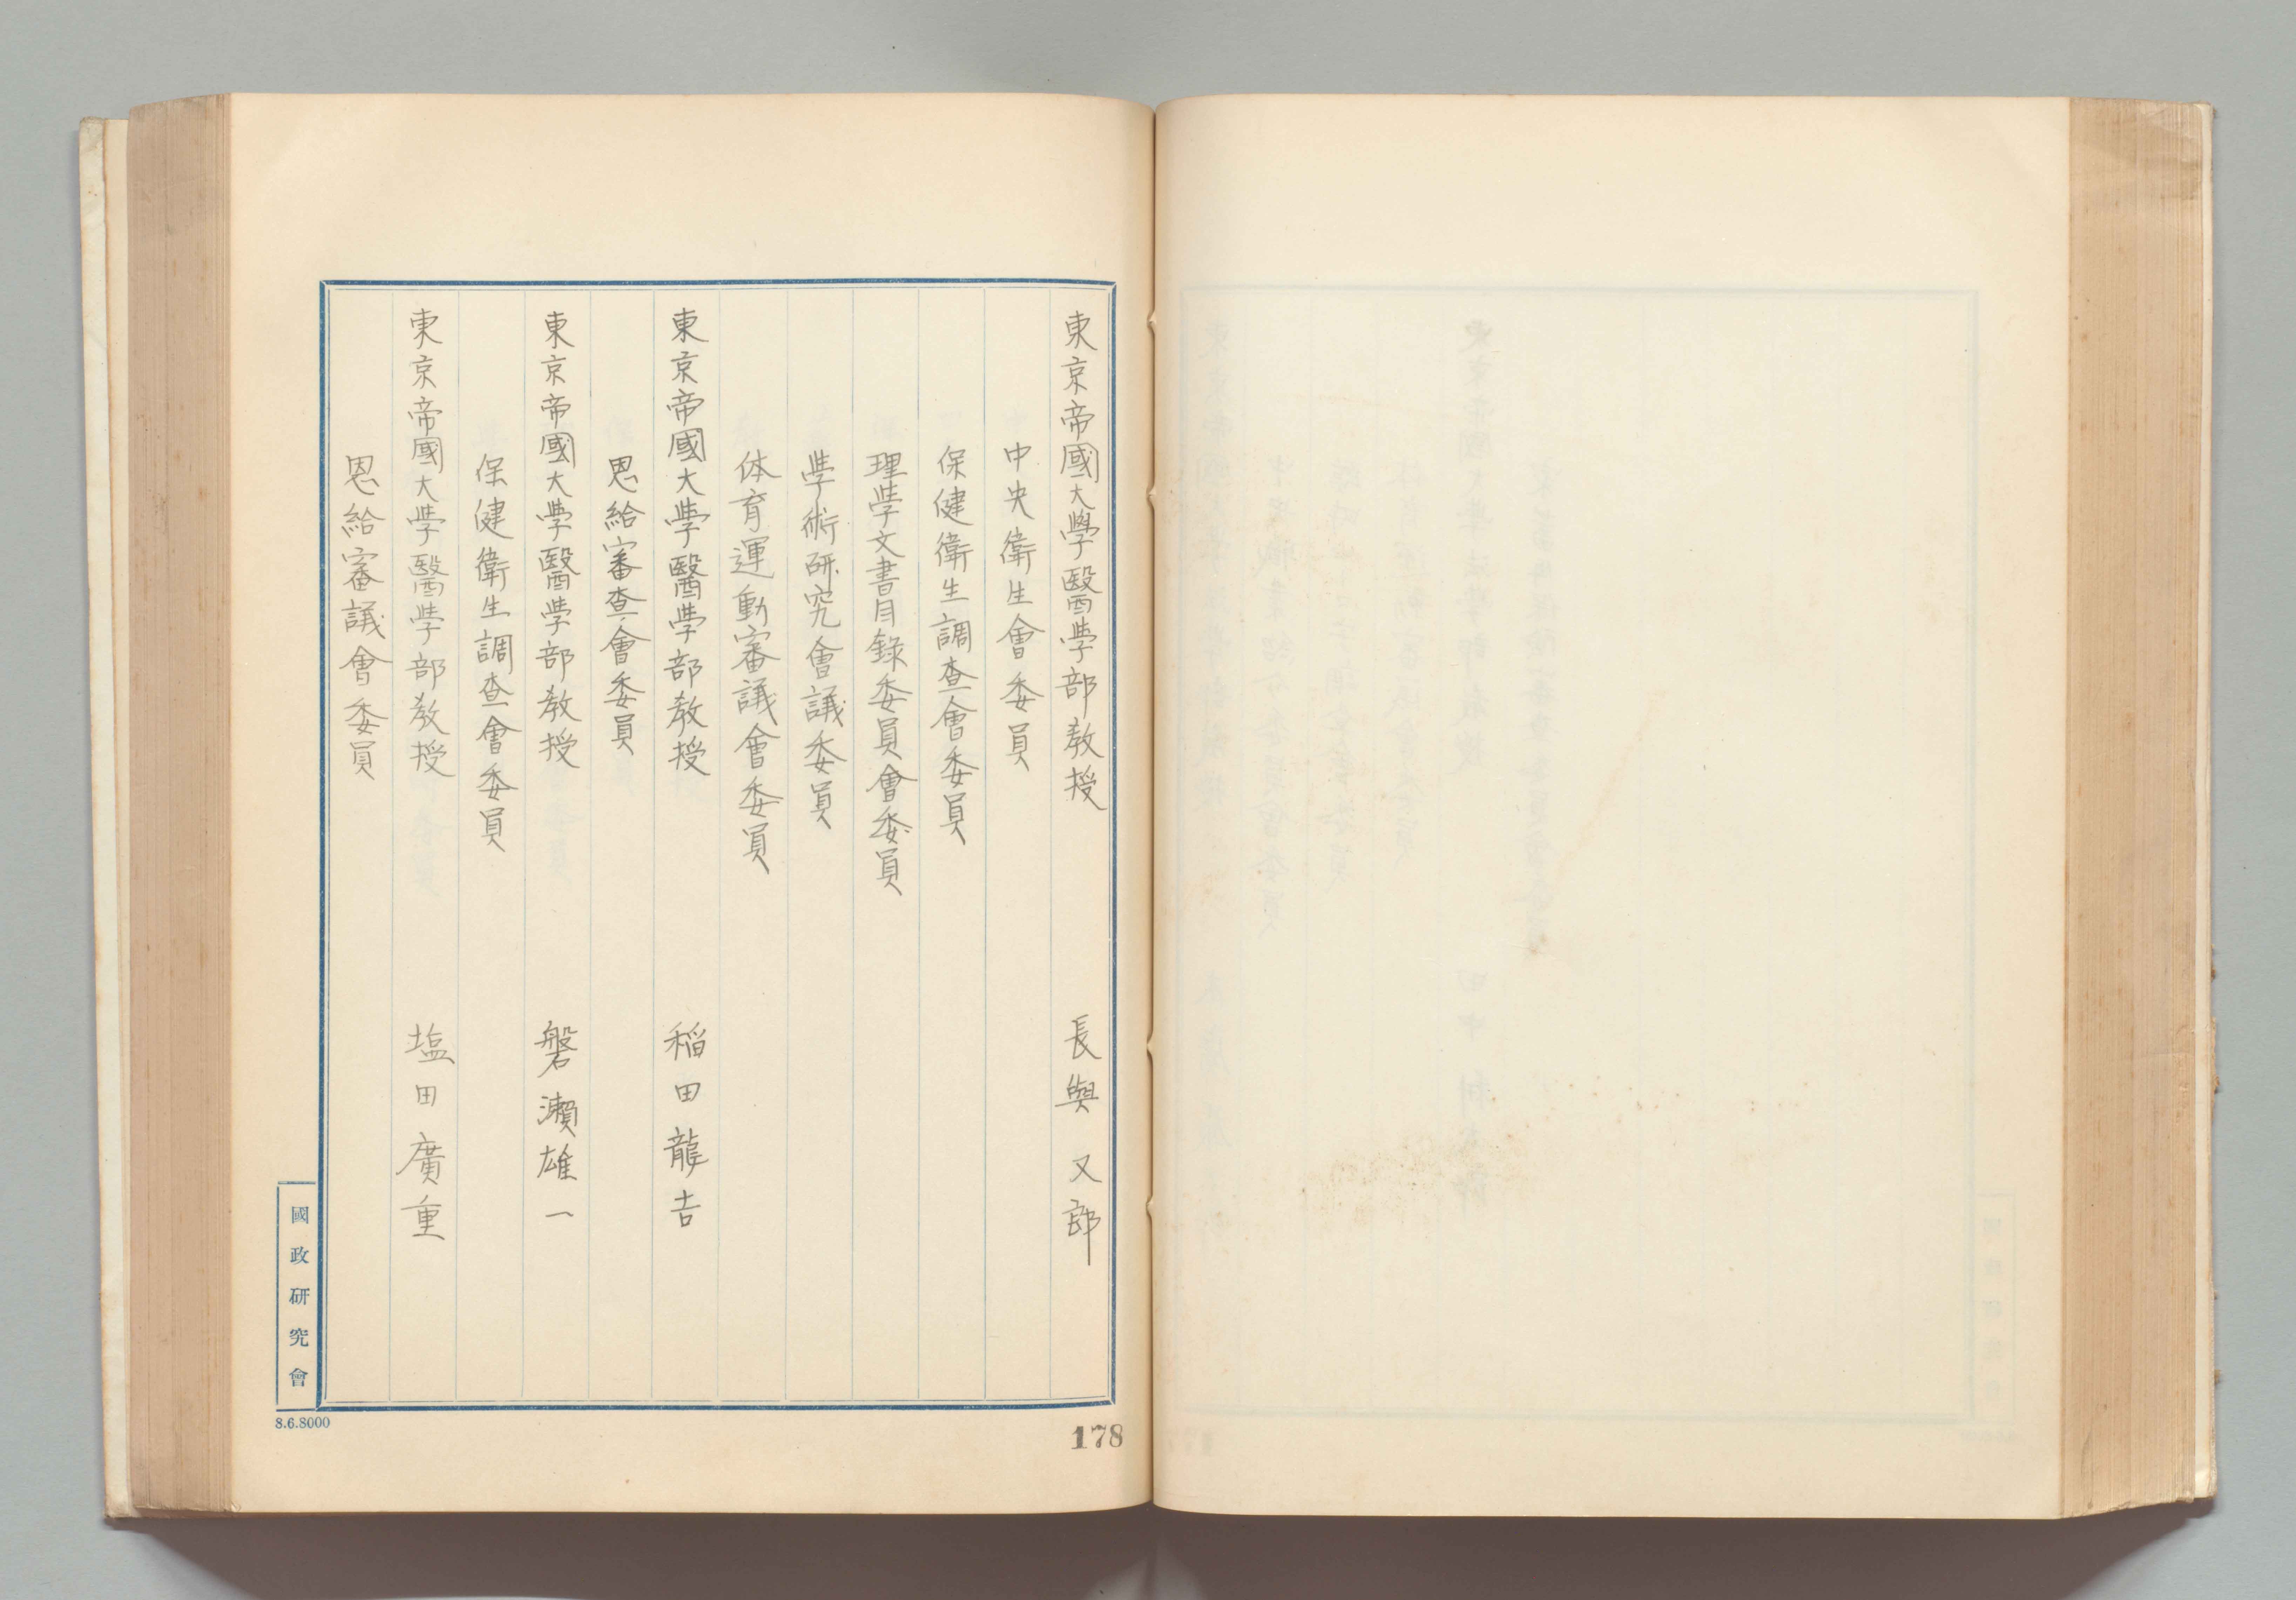 東京帝國大學醫学部教授 長與又郎
中央衛生會委員
保健衛生調查會委員
理学文書目錄委員會委員
学術研究會議委員
体育運動審議會委員
東京帝國大学醫学部教授 稲田龍吉
恩給審查會委員
東京帝國大学醫学部教授 磐瀨雄一
保健衛生調查會委員
東京帝國大学醫学部教授 塩田廣重
恩給審議會委員
國政研究會
8.6.8000
178